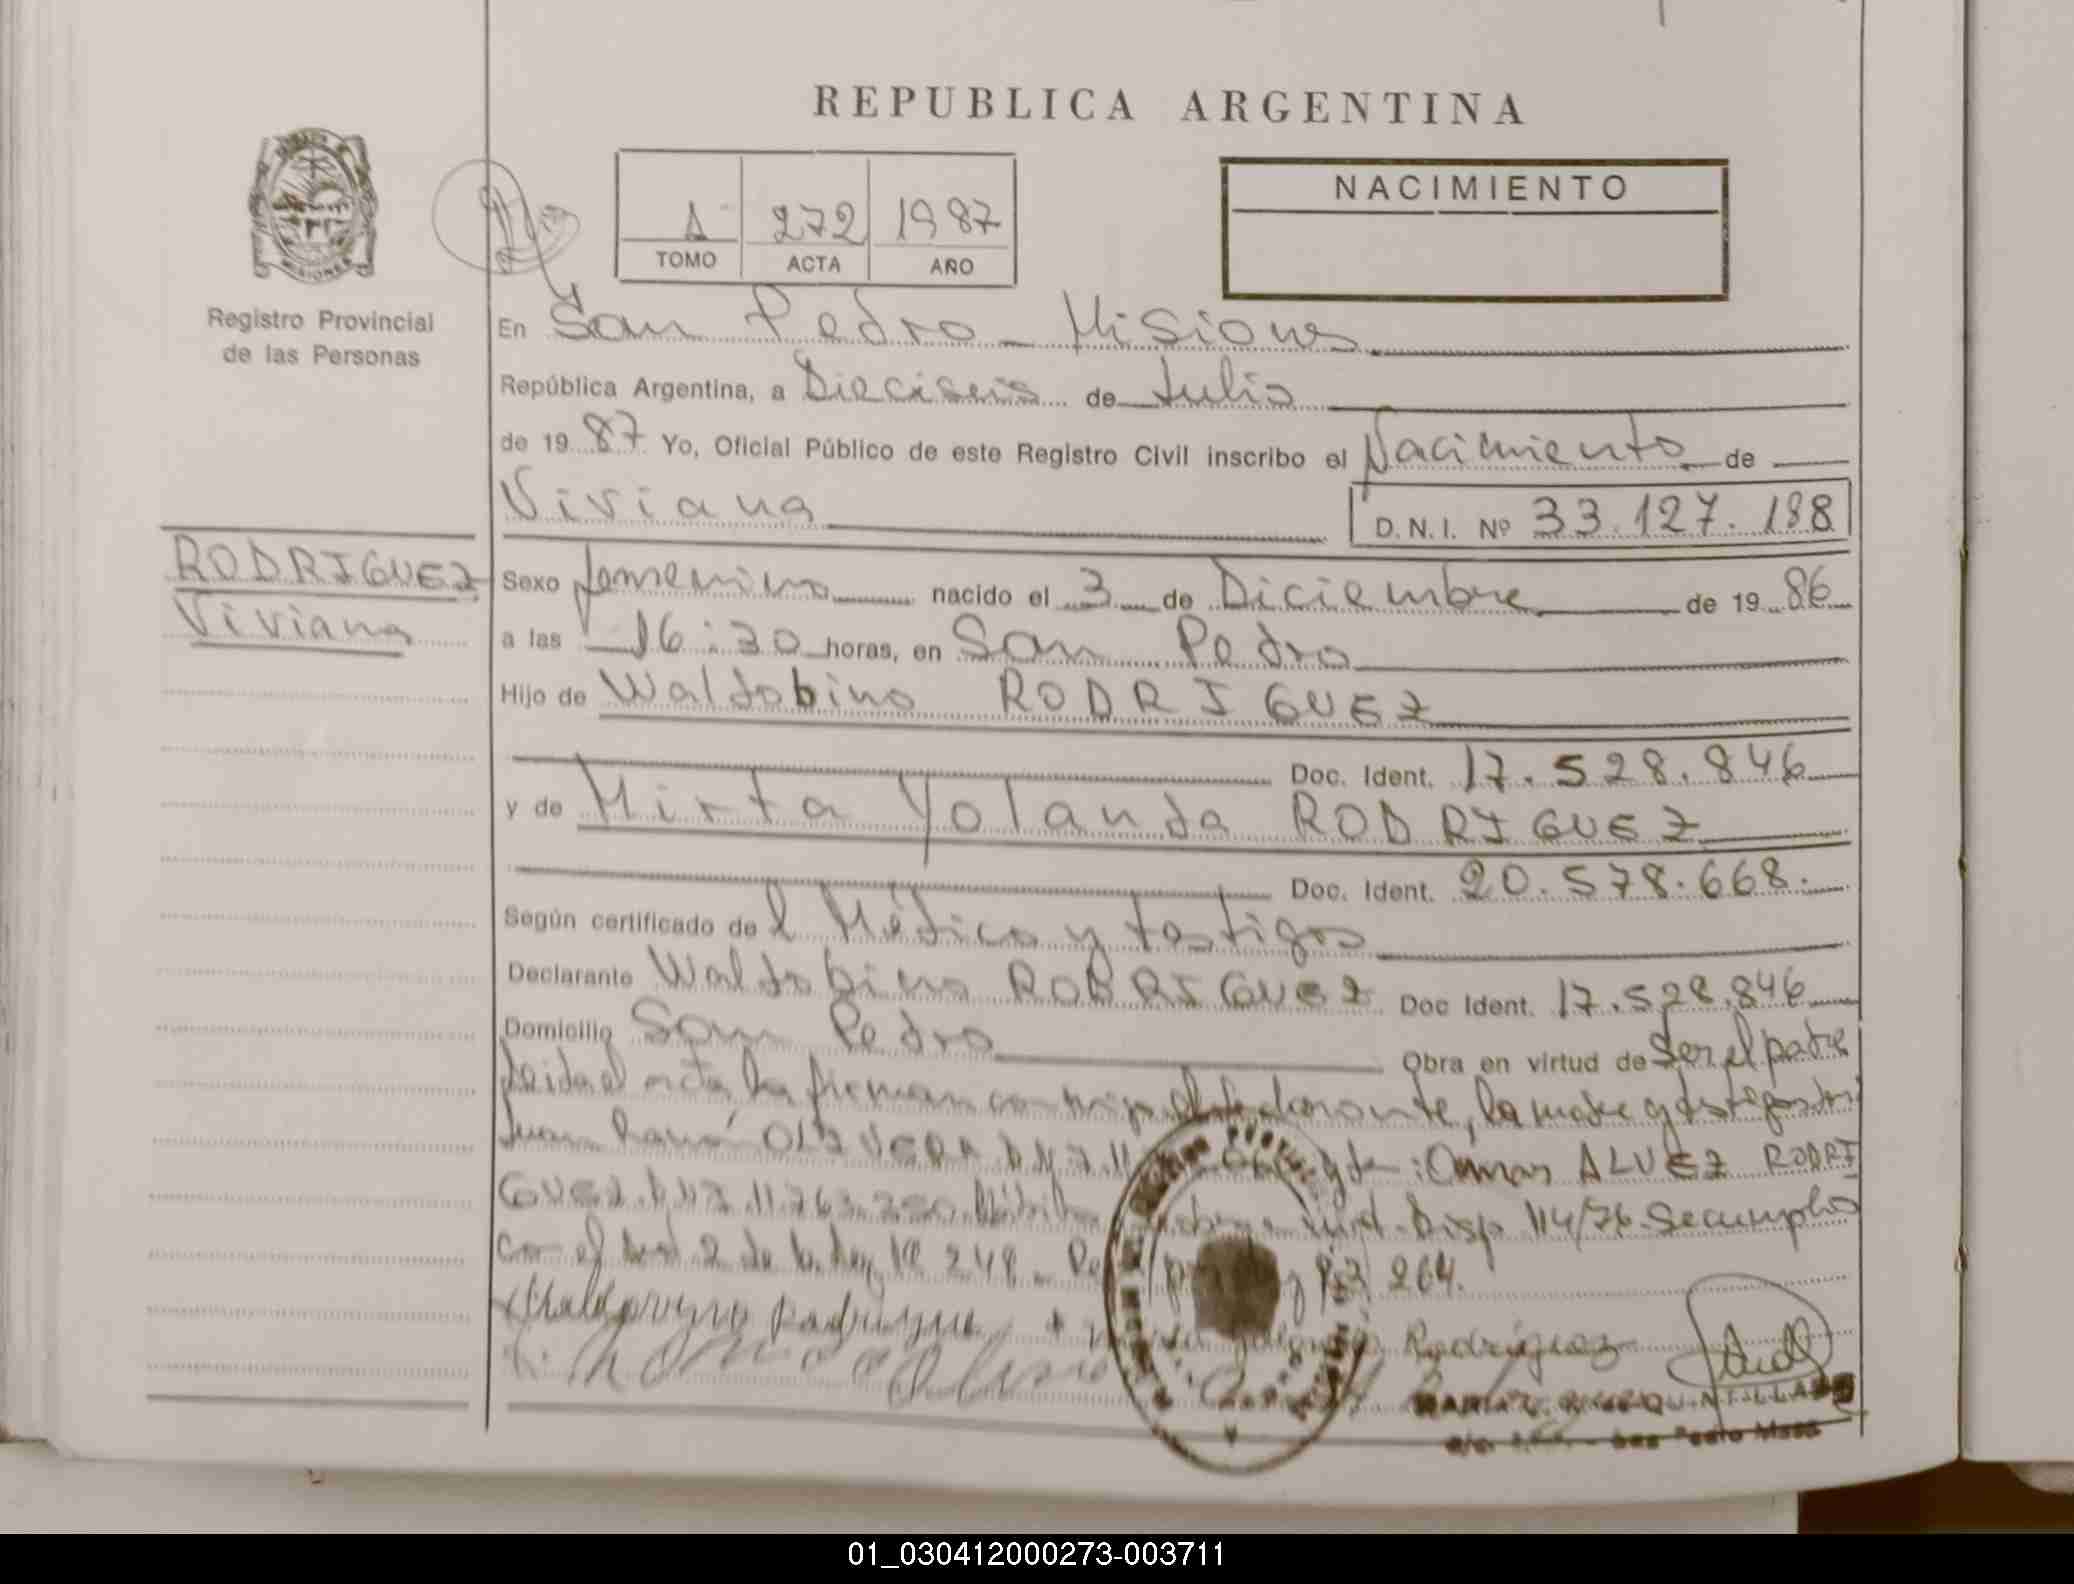 REPUBLICA ARGENTINA
NACIMIENTO
1 272 1987
TOMO ACTA AÑO
MISIONES
Registro Provincial
de las Personas
En San Pedro - Misiones
República Argentina, a Dieciseis de Julio
de 1987 Yo, Oficial Público de este Registro Civil inscribo el Nacimiento de
Viviana
D.N.I. Nº 33.127.188
RODRIGUEZ
Viviana
Sexo femenino nacido el 3 de Diciembre de 1986
a las 16:30 horas, en San Pedro
Hijo de Waldobino RODRIGUEZ
Doc. Ident. 17.528.846
y de Mirta Yolanda RODRIGUEZ
Doc. Ident. 20.578.668.
Según certificado del Médico y testigos
Declarante Waldobino RODRIGUEZ Doc Ident. 17.528.846
Domicilio San Pedro Obra en virtud de Ser el padre
leida el acta, la firman conmigo el declarante, la madre y testigos
Juan Ramón OLIVERA DNI 11 Omar ALVEZ RODRI
GUEZ DNI 11.763.250 Disp 114/76. Se cumplio
con el art 2 de la ley 18.248. 264.
Rodriguez Rodriguez
San Pedro Mnes
01_030412000273-003711